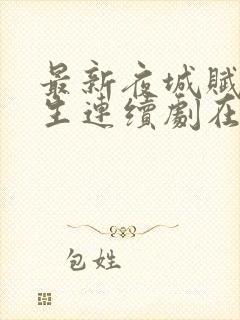 最新夜城賦
生連續劇在
包姓